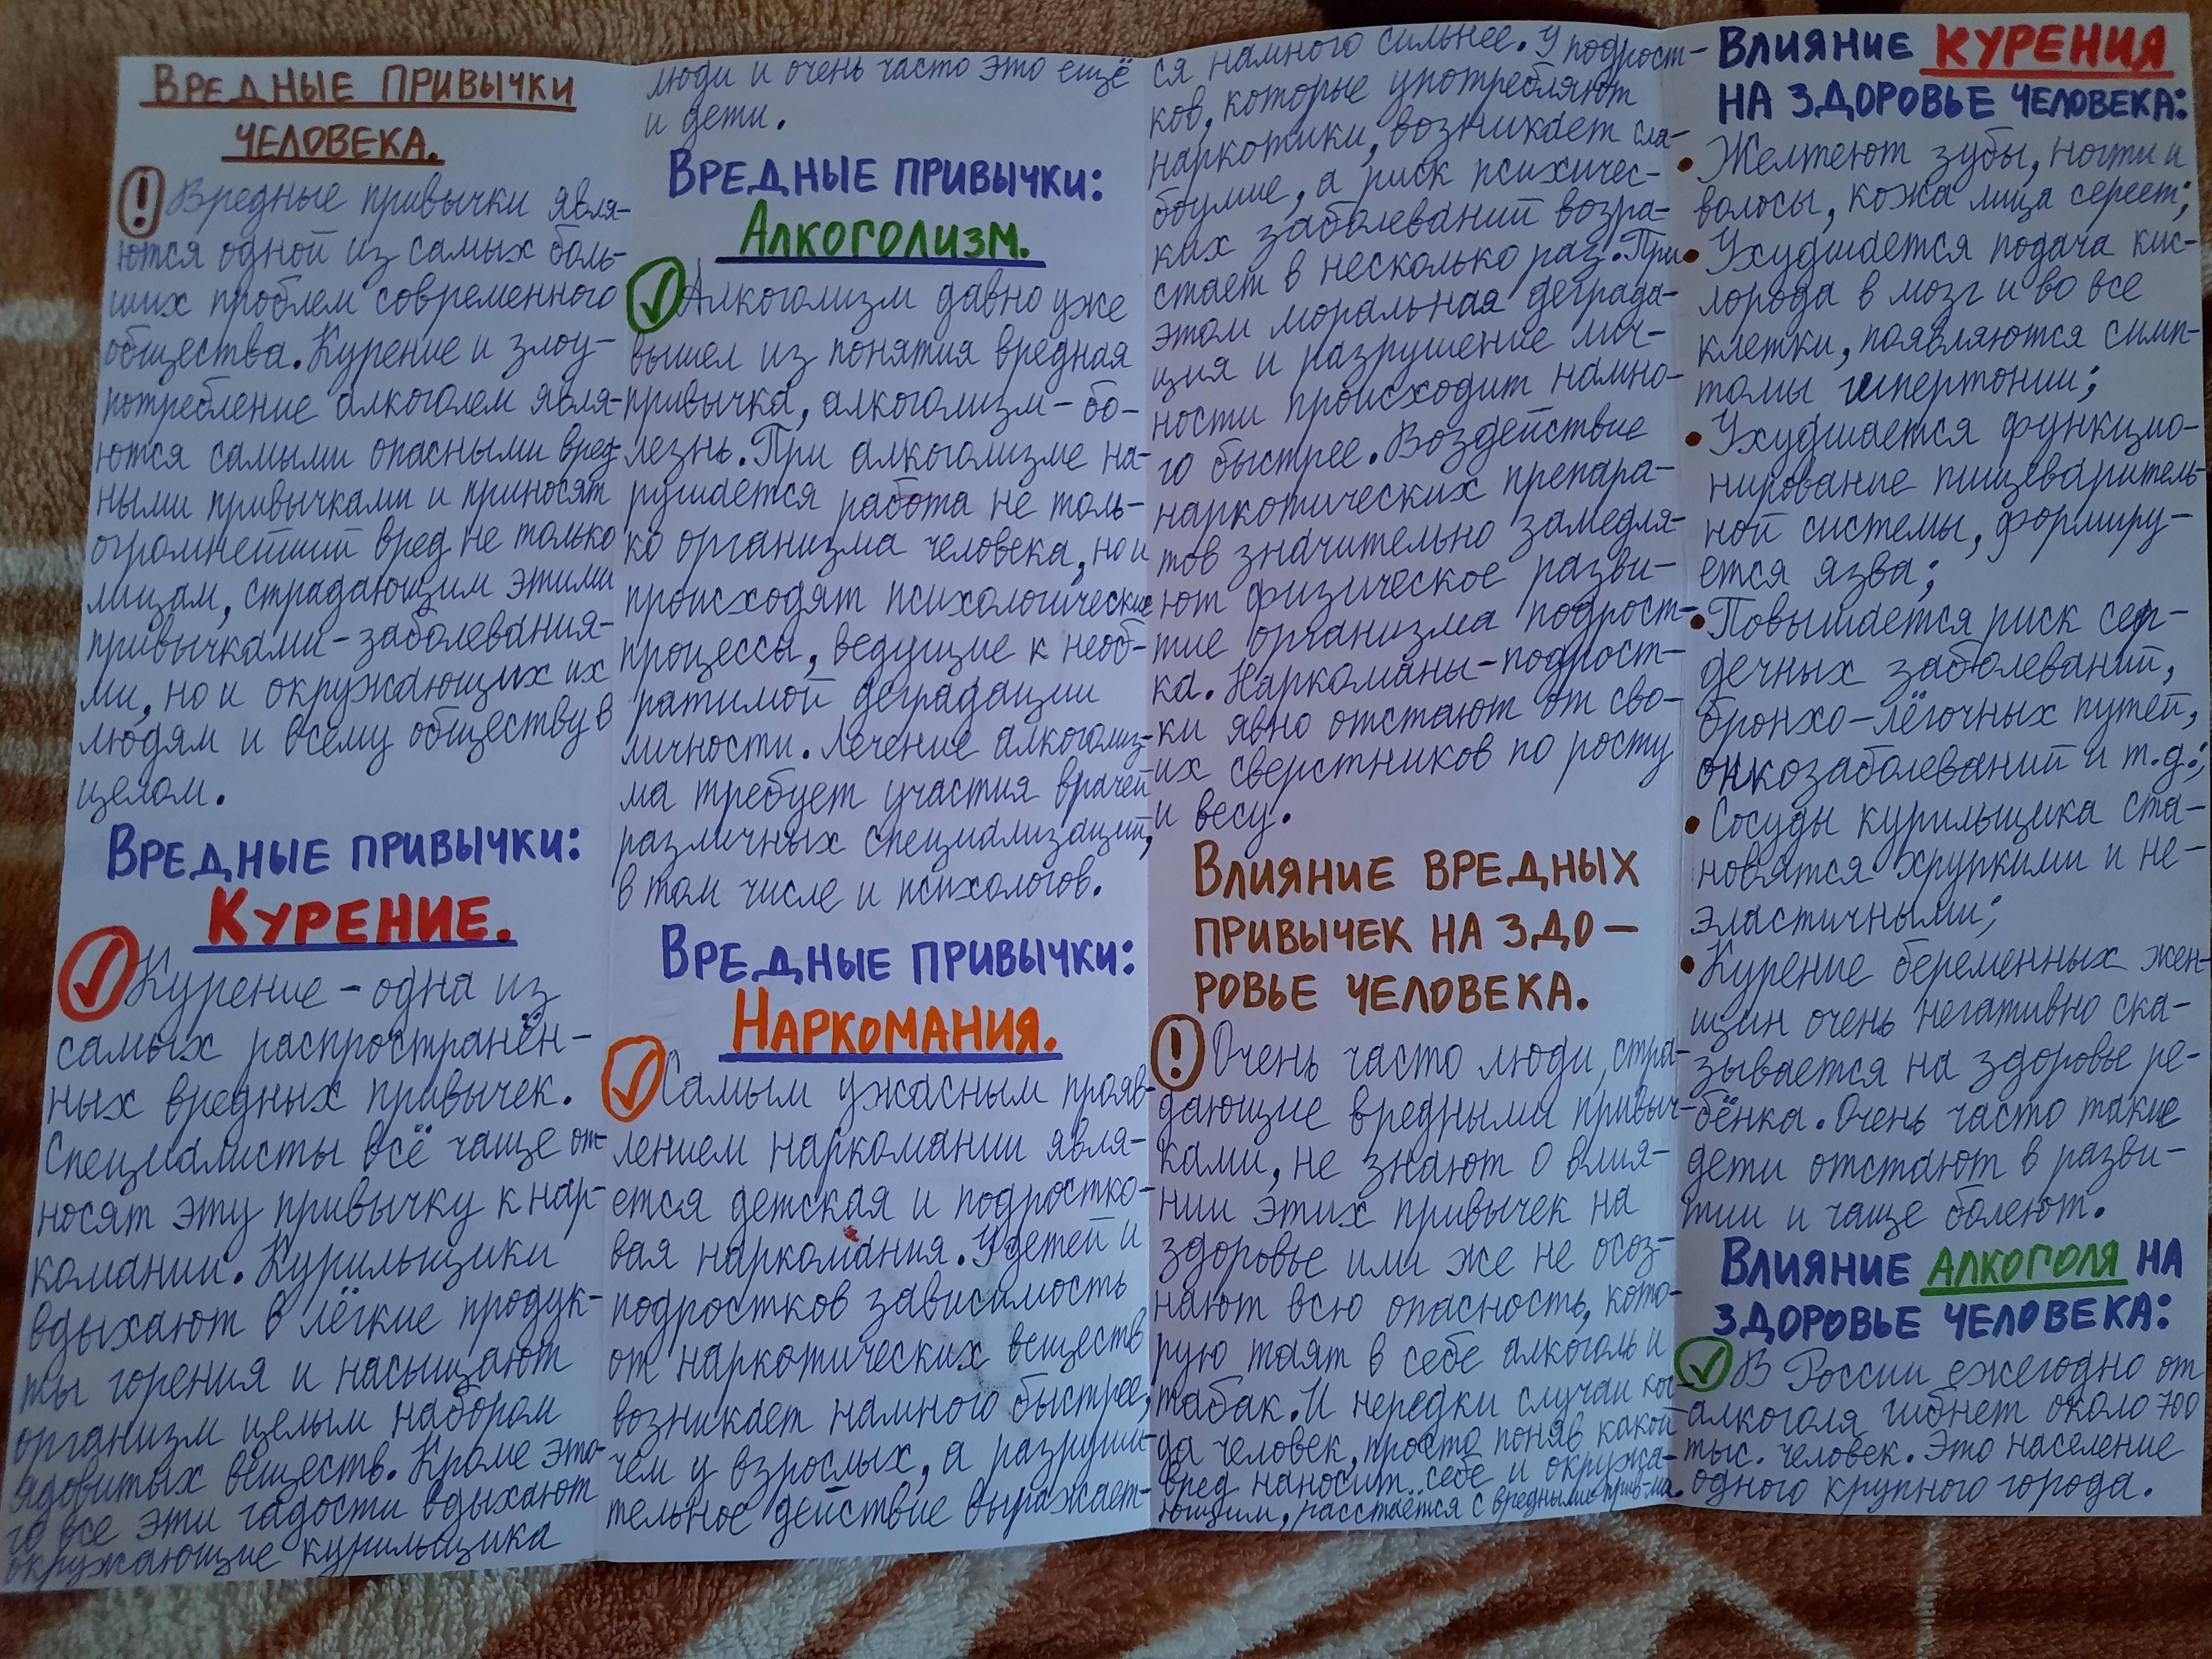 ВРЕДНЫЕ ПРИВЫЧКИ
ЧЕЛОВЕКА.
! Вредные привычки явля-
ются одной из самых боль-
ших проблем современного
общества. Курение и злоу-
потребление алкоголем явля-
ются самыми опасными вред-
ными привычками и приносят
огромнейший вред не только
лицам, страдающим этими
привычками-заболевания-
ми, но и окружающих их
людям и всему обществу в
целом.
ВРЕДНЫЕ ПРИВЫЧКИ:
КУРЕНИЕ.
Курение - одна из
самых распространён-
ных вредных привычек.
Специалисты всё чаще от-
носят эту привычку к нар-
комании. Курильщики
вдыхают в лёгкие продук-
ты горения и насыщают
организм целым набором
ядовитых веществ. Кроме это-
го все эти гадости вдыхают
окружающие курильщика
люди и очень часто это ещё
и дети.
ВРЕДНЫЕ ПРИВЫЧКИ:
АЛКОГОЛИЗМ.
Алкоголизм давно уже
вышел из понятия вредная
привычка, алкоголизм - бо-
лезнь. При алкоголизме на-
рушается работа не толь-
ко организма человека, но и
происходят психологические
процессы, ведущие к необ-
ратимой деградации
личности. Лечение алкоголиз-
ма требует участия врачей
различных специализаций,
в том числе и психологов.
ВРЕДНЫЕ ПРИВЫЧКИ:
НАРКОМАНИЯ.
Самым ужасным прояв-
лением наркомании явля-
ется детская и подростко-
вая наркомания. У детей и
подростков зависимость
от наркотических веществ
возникает намного быстрее,
чем у взрослых, а разруши-
тельное действие выражает-
ся намного сильнее. У подрост-
ков, которые употребляют
наркотики, возникает сла-
боумие, а риск психичес-
ких заболеваний возра-
стает в несколько раз. При
этом моральная деграда-
ция и разрушение лич-
ности происходит намно-
го быстрее. Воздействие
наркотических препара-
тов значительно замедля-
ют физическое разви-
тие организма подрост-
ка. Наркоманы-подрост-
ки явно отстают от сво-
их сверстников по росту
и весу.
ВЛИЯНИЕ ВРЕДНЫХ
ПРИВЫЧЕК НА ЗДО-
РОВЬЕ ЧЕЛОВЕКА.
! Очень часто люди, стра-
дающие вредными привыч-
ками, не знают о влия-
нии этих привычек на
здоровье или же не осоз-
нают всю опасность, кото-
рую таят в себе алкоголь и
табак. И нередки случаи ког-
да человек, просто поняв какой
вред наносит себе и окружа-
ющим, расстаётся с вредными прив-ми.
ВЛИЯНИЕ КУРЕНИЯ
НА ЗДОРОВЬЕ ЧЕЛОВЕКА:
• Желтеют зубы, ногти и
волосы, кожа лица сереет;
• Ухудшается подача кис-
лорода в мозг и во все
клетки, появляются симп-
томы гипертонии;
• Ухудшается функцио-
нирование пищеваритель-
ной системы, формиру-
ется язва;
• Повышается риск сер-
дечных заболеваний,
бронхо-лёгочных путей,
онкозаболеваний и т.д.;
• Сосуды курильщика ста-
новятся хрупкими и не-
эластичными;
• Курение беременных жен-
щин очень негативно ска-
зывается на здоровье ре-
бёнка. Очень часто такие
дети отстают в разви-
тии и чаще болеют.
ВЛИЯНИЕ АЛКОГОЛЯ НА
ЗДОРОВЬЕ ЧЕЛОВЕКА:
В России ежегодно от
алкоголя гибнет около 700
тыс. человек. Это население
одного крупного города.